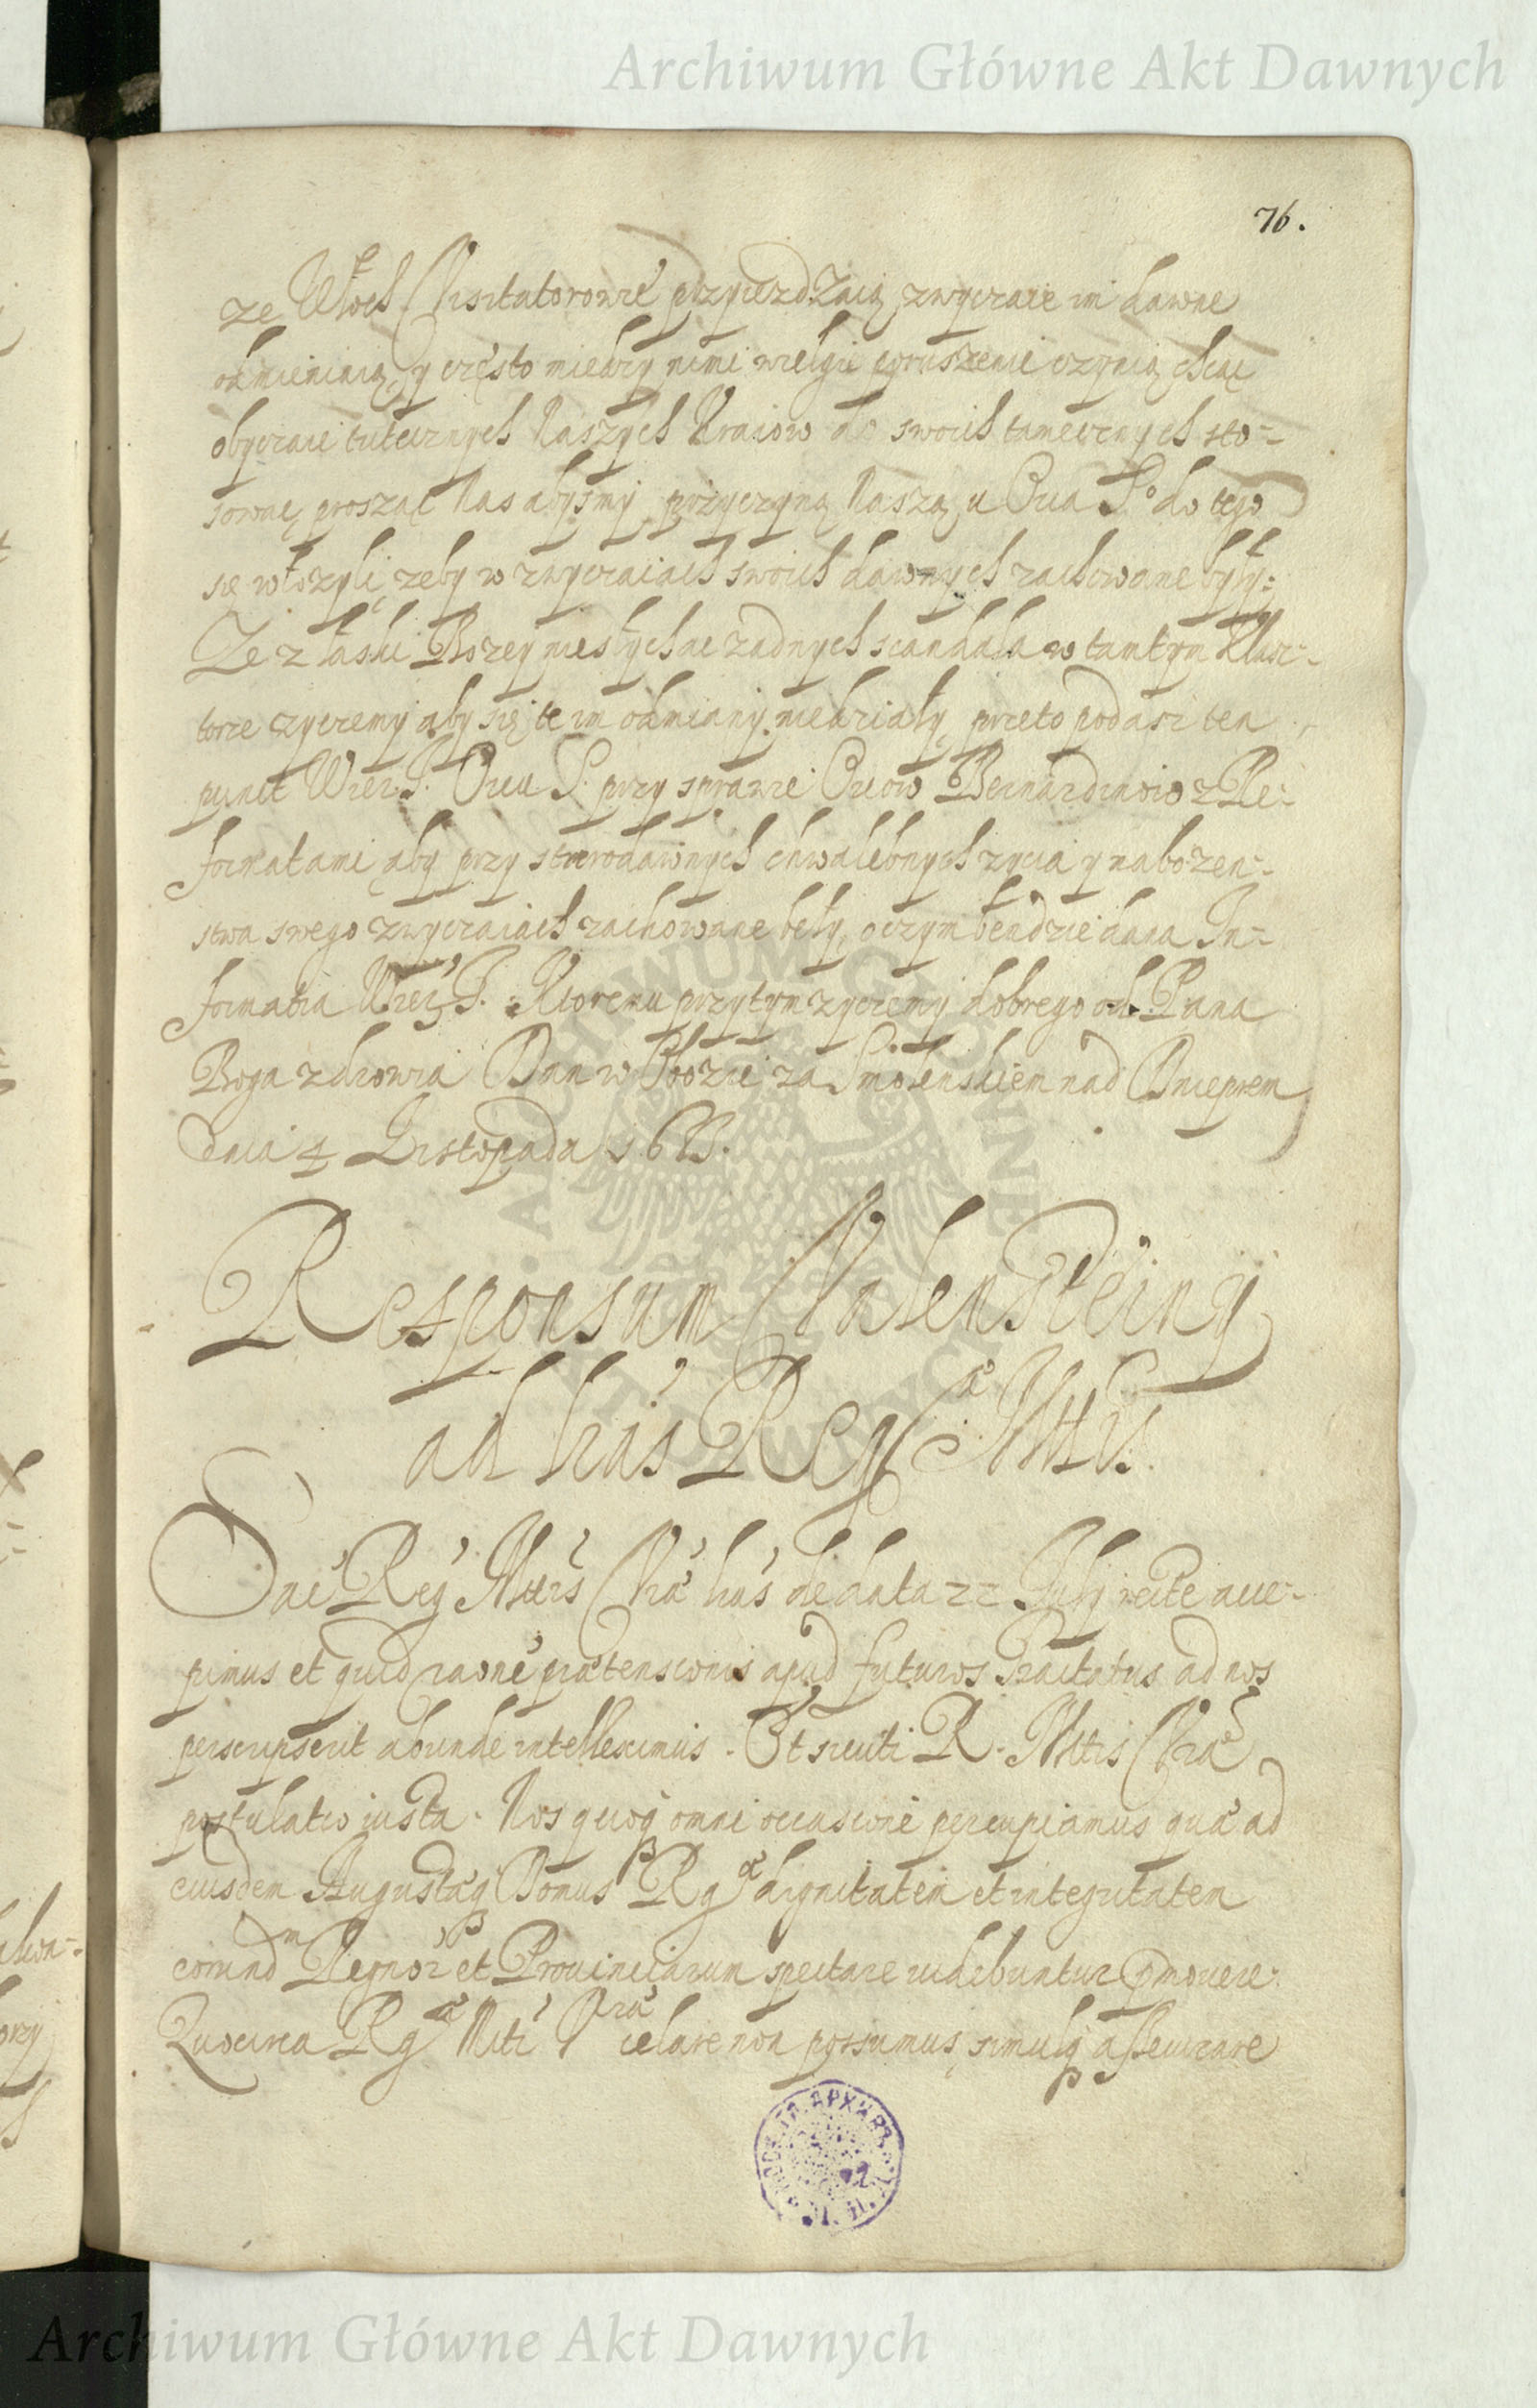 Archiwum Główne Akt Dawnych
76.
ze Włoch Visitatorowie przyiezdzaią zwyczaie im dawne
odmieniaią, y często miedzy nimi wielgie poruszenie czynią chcąc
obyczaie tutecznych Naszych Kraiow do swoich tamecznych sto-
sowac, prosząc Nas abysmy przyczyną Naszą u Oica S.º do tego
się włozyli, zeby w zwyczaiach swoich dawnych zachowane były:
Ze z łaski Bozey nie słychac zadnych scandala w tamtym Klasz-
torze zyczemy aby się te im odmiany niedziały, przeto podasz ten
punct Wier. T. Oicu S. przy sprawie Oicow Bernardinow z Re-
formatami, aby przy starodawnych chwalebnych zycia y nabozen-
stwa swego zwyczaiach zachowane były, o czym bendzie dana In-
formatia Wier. T. Ktoremu przytym zyczemy dobrego od Pana
Boga zdrowia Dan w Obozie za Smolenskiem nad Dnieprem
dnia 4 Listopada 1633.
Responsum Valensteiny
ad lrās Regæ Mttis.
Sacr Reg Mttis Vræ lras de data 22 July recte acce-
pimus et quid raone prætensionis apud futuros Tractatus ad nos
perscripserit abunde intelleximus. Et sicuti R. Mttis Vræ
postulatio iusta. Nos quoq omni occasione percupiamus quæ ad
eiusdem Augustæq Domus Rgæ dignitatem et integritatem
eorundm Regnor et Prouinciarum spectare videbuntur promouere.
Quocirca Rgæ Mtti Vræ celare non possumus, simulq assecurare
Archiwum Główne Akt Dawnych